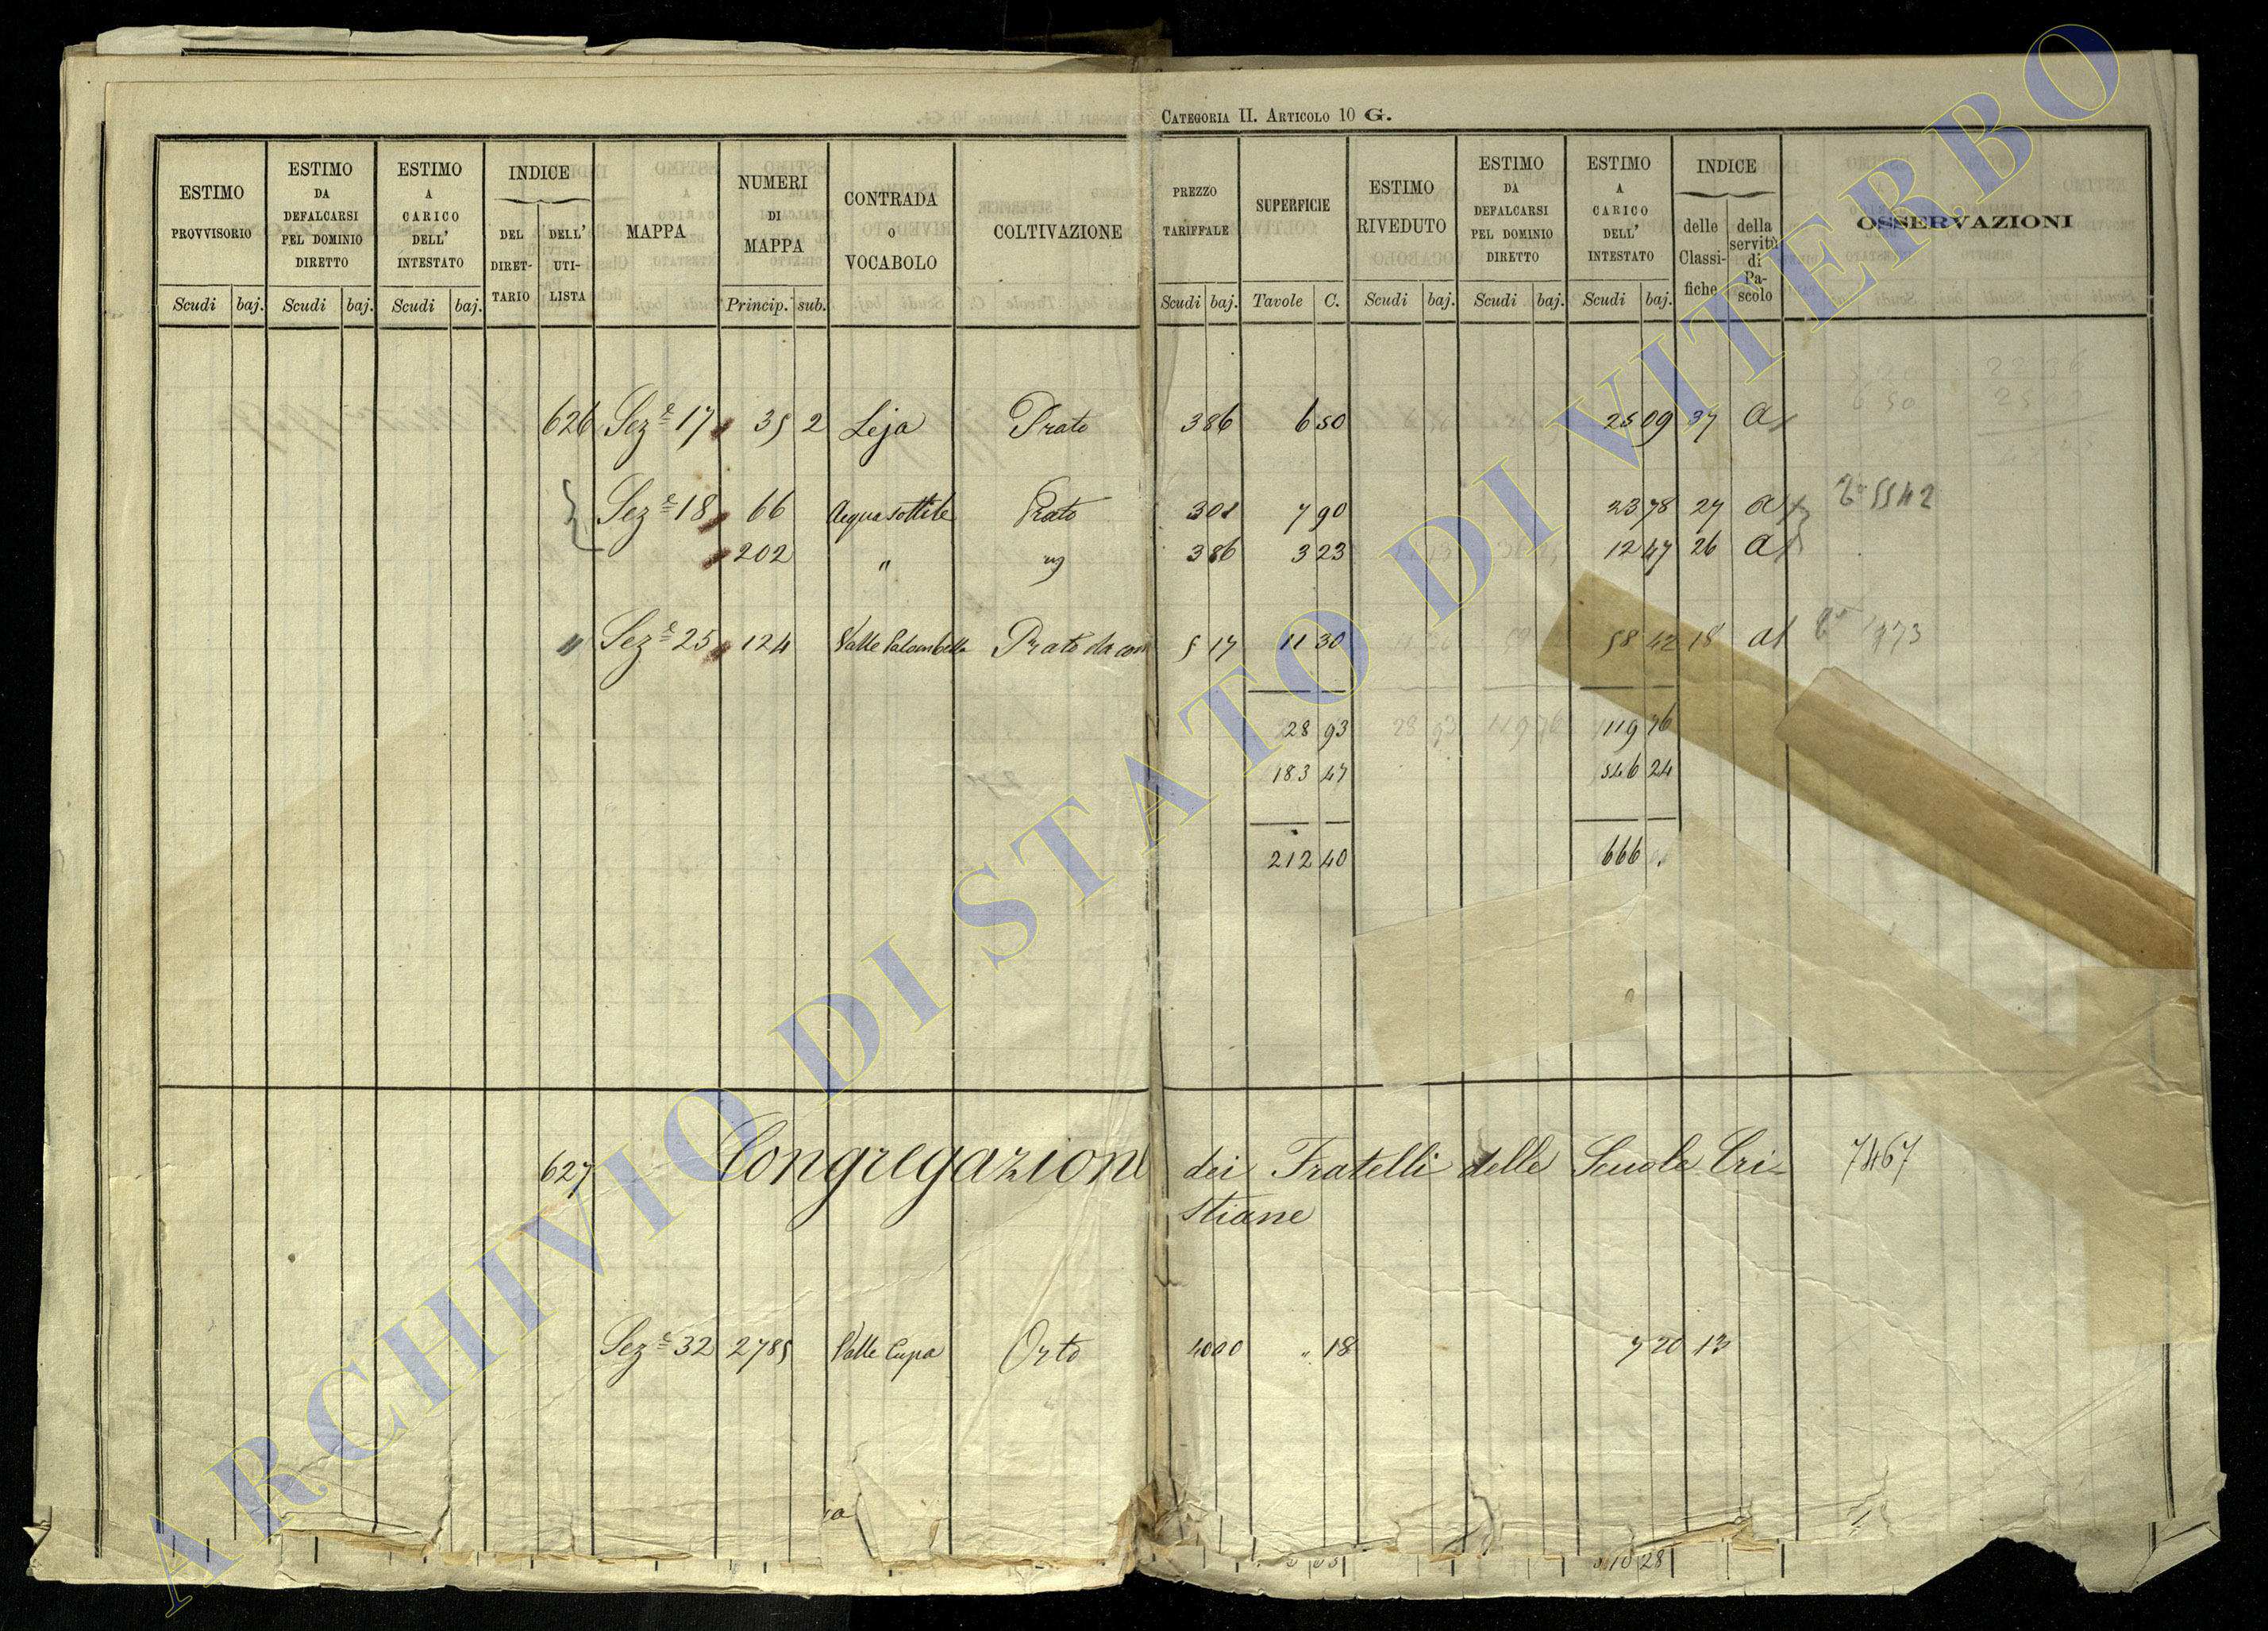 CATEGORIA II. ARTICOLO 10 G.
ESTIMO PROVVISORIO Scudi baj.
ESTIMO DA DEFALCARSI PEL DOMINIO DIRETTO Scudi baj.
ESTIMO A CARICO DELL' INTESTATO Scudi baj.
INDICE DEL DIRET-TARIO DELL' UTI-LISTA
MAPPA
NUMERI DI MAPPA Princip. sub.
CONTRADA o VOCABOLO
COLTIVAZIONE
PREZZO TARIFFALE Scudi baj.
SUPERFICIE Tavole C.
ESTIMO RIVEDUTO Scudi baj.
ESTIMO DA DEFALCARSI PEL DOMINIO DIRETTO Scudi baj.
ESTIMO A CARICO DELL' INTESTATO Scudi baj.
INDICE delle Classi-fiche della servitù di Pa-scolo
OSSERVAZIONI
626 Sez.e 17 35 2 Leja Prato 3 86 6 50 25 09 37 a
Sez.e 18 66 Acqua sottile Prato 3 01 7 90 23 78 27 a 5542
202 " " 3 86 3 23 12 47 26 a
" Sez.e 25 124 Valle Palombella Prato da con 5 17 11 30 58 42 18 a 1373
28 93 119 76
183 47 546 24
212 40 666 .
627 Congregazione dei Fratelli delle Scuole Cri-
stiane 7467
Sez.e 32 2785 Valle Cupa Orto 40 00 " 18 7 20 13
10 28
ARCHIVIO DI STATO DI VITERBO